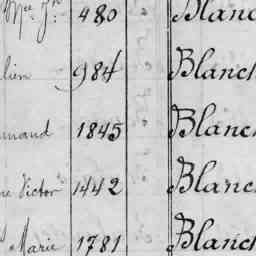 Mce Jh 480 Blanc
lien 984 Blanch
mand 1845 Blanch
re Victor 1442 Blanc
Marie 1781 Blanch